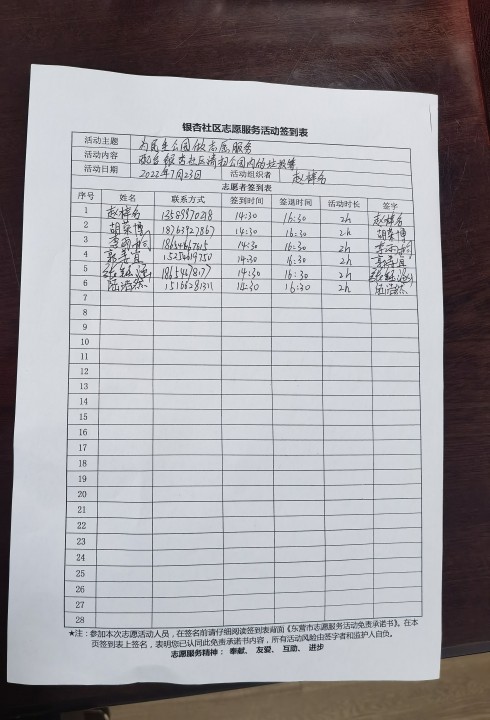 银杏社区志愿服务活动签到表
活动主题 为民生公园做志愿服务
活动内容 配合银杏社区清扫公园内的垃圾等
活动日期 2022年7月23日 活动组织者
志愿者签到表
序号 姓名 联系方式 签到时间 签退时间 活动时长 签字
1 14:30 16:30 2h
2 胡荣博 18763927867 14:30 16:30 2h 胡荣博
3 14:30 16:30 2h
4 14:30 16:30 2h
5 14:30 16:30 2h
6 陆浩然 14:30 16:30 2h 陆浩然
7
8
9
10
11
12
13
14
15
16
17
18
19
20
21
22
23
24
25
26
27
28
★注：参加本次志愿活动人员，在签名前请仔细阅读签到表背面《东营市志愿服务活动免责承诺书》。在本
页签到表上签名，表明您已认同此免责承诺书内容，所有活动风险由签字者和监护人自负。
志愿服务精神： 奉献、 友爱、 互助、 进步